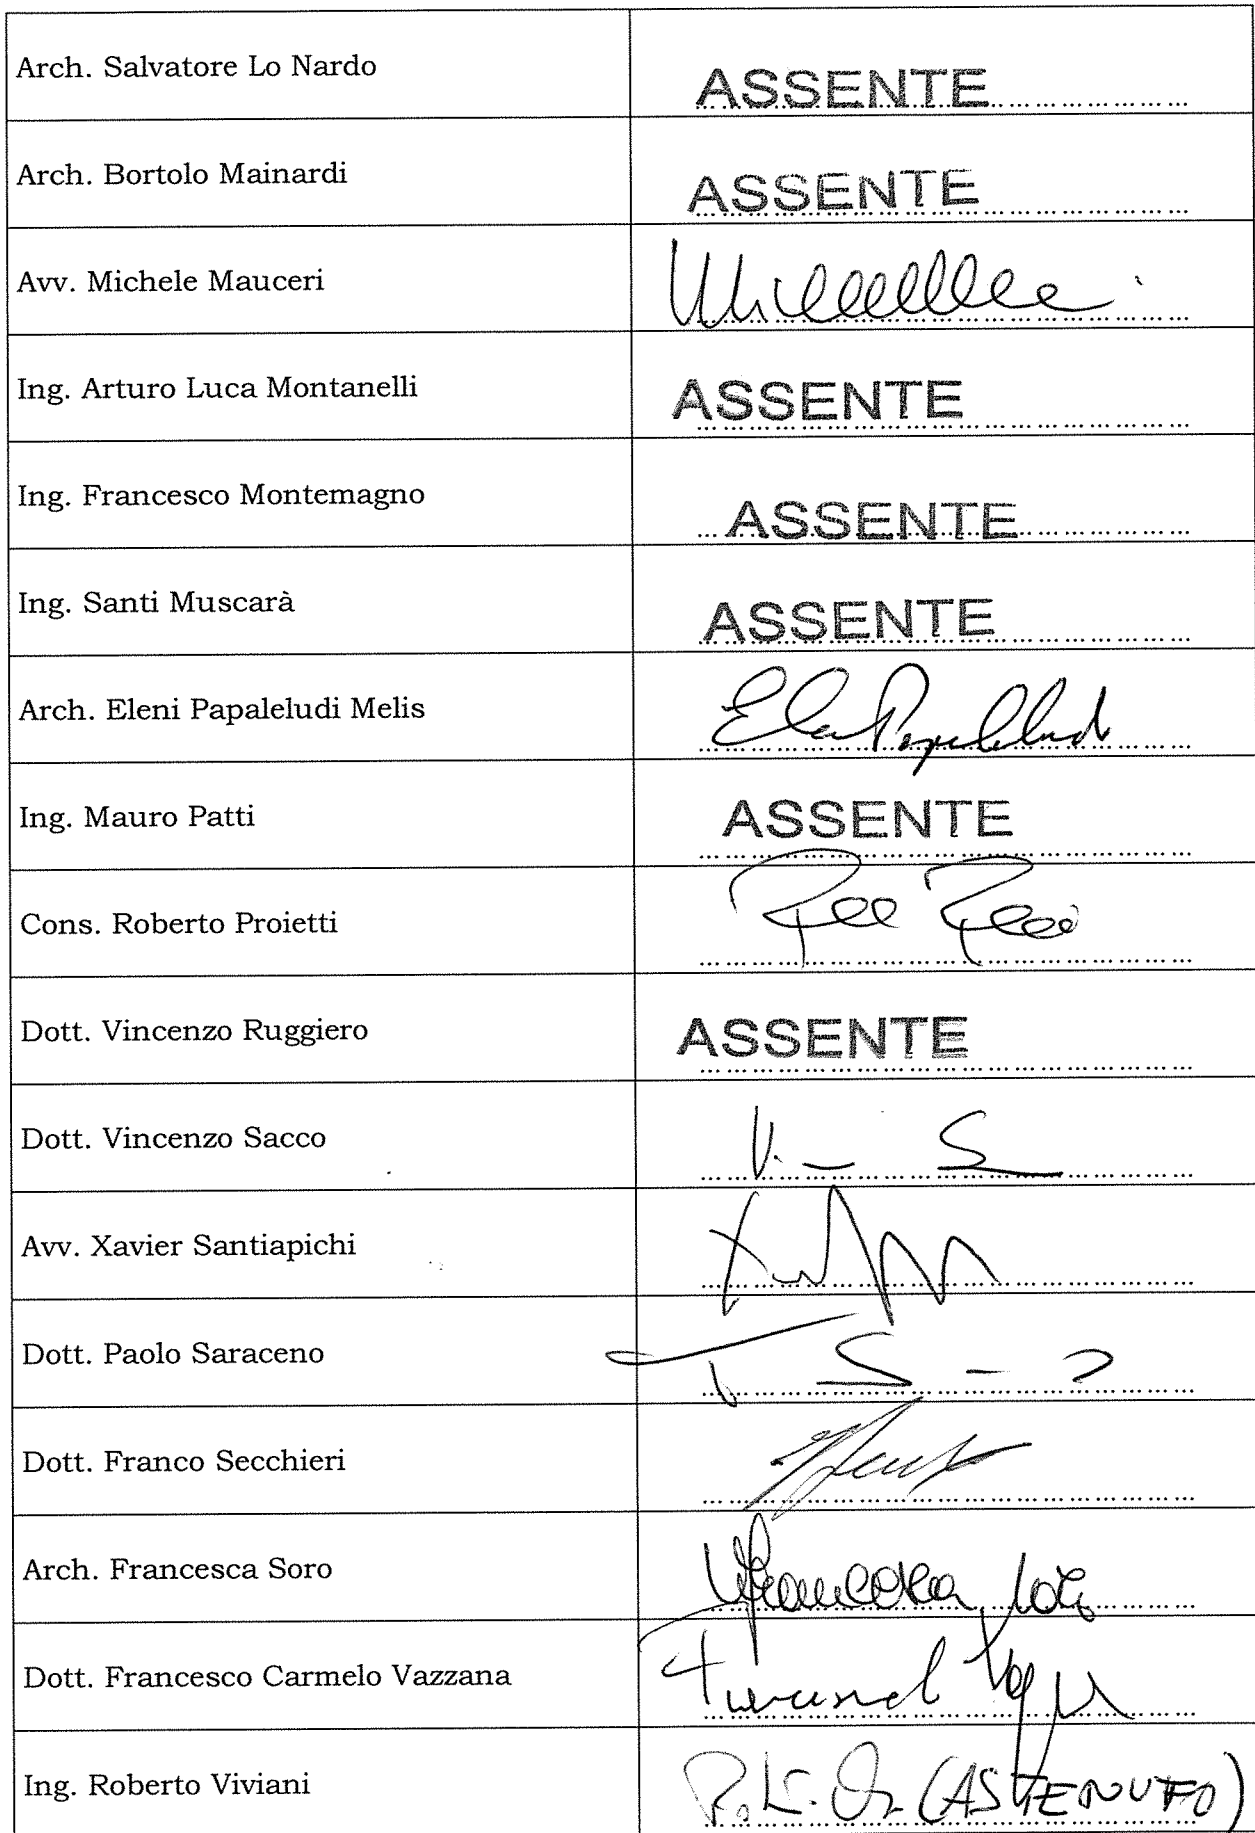 Arch. Salvatore Lo Nardo ASSENTE
Arch. Bortolo Mainardi ASSENTE
Avv. Michele Mauceri
Ing. Arturo Luca Montanelli ASSENTE
Ing. Francesco Montemagno ASSENTE
Ing. Santi Muscarà ASSENTE
Arch. Eleni Papaleludi Melis
Ing. Mauro Patti ASSENTE
Cons. Roberto Proietti
Dott. Vincenzo Ruggiero ASSENTE
Dott. Vincenzo Sacco
Avv. Xavier Santiapichi
Dott. Paolo Saraceno
Dott. Franco Secchieri
Arch. Francesca Soro
Dott. Francesco Carmelo Vazzana
Ing. Roberto Viviani (ASTENUTO)